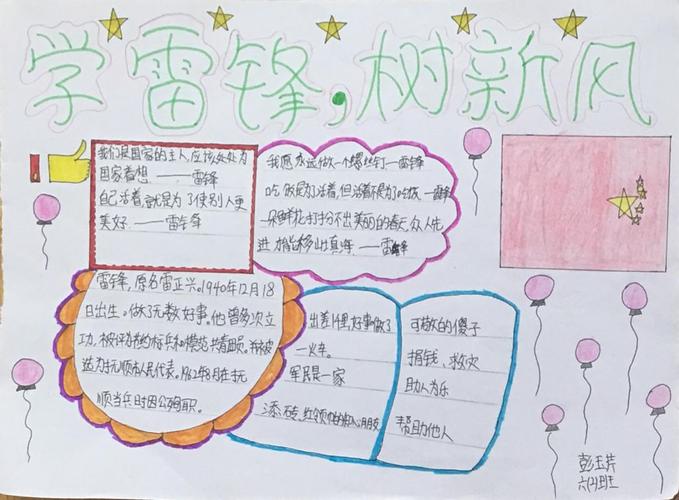 学雷锋,树新风
我们是国家的主人,应该处处为
国家着想. ——雷锋
自己活着,就是为了使别人更
美好. ——雷锋
我愿永远做一个螺丝钉——雷锋
吃饭是为了活着,但活着不是为了吃饭.——雷锋
一朵鲜花打扮不出美丽的春天,众人先
进才能移山填海.——雷锋
雷锋,原名雷正兴。1940年12月18
日出生。做了无数好事。他曾多次立
功,被评为节约标兵和模范共青团员。并被
选为抚顺市人民代表。1962年8月在抚
顺当兵时因公殉职。
出差千里,好事做了
一火车。
军民是一家
添砖,红领巾的知心朋友
可敬的傻子
捐钱、救灾
助人为乐
帮助他人
彭玉芹
六(2)班